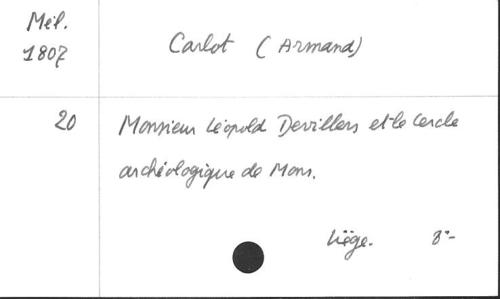 Mél.
1807
Carlot (Armand)
20
Monsieur Léopold Devillers et le Cercle
archéologique de Mons.
Liège. 8°-